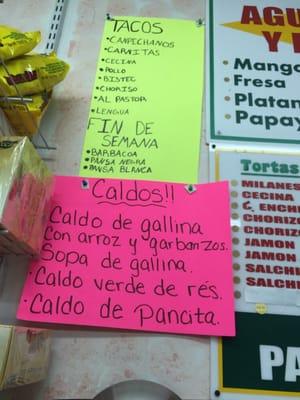 TACOS
• CAMPECHANOS
• CARNITAS
• CECINA
• POLLO
• BISTEC
• CHORISO
• AL PASTOR
• LENGUA
FIN DE
SEMANA
• BARBACOA
• PANSA NEGRA
• PANSA BLANCA
Caldos!!
Caldo de gallina
con arroz y garbanzos.
Sopa de gallina.
• Caldo verde de rés.
• Caldo de Pancita.
AGU
Y
• Mang
• Fresa
• Platan
• Papay
Tortas
MILANES
CECINA
CHORIZO
CHORIZO
JAMON
JAMON
SALCHI
SALCHI
PA